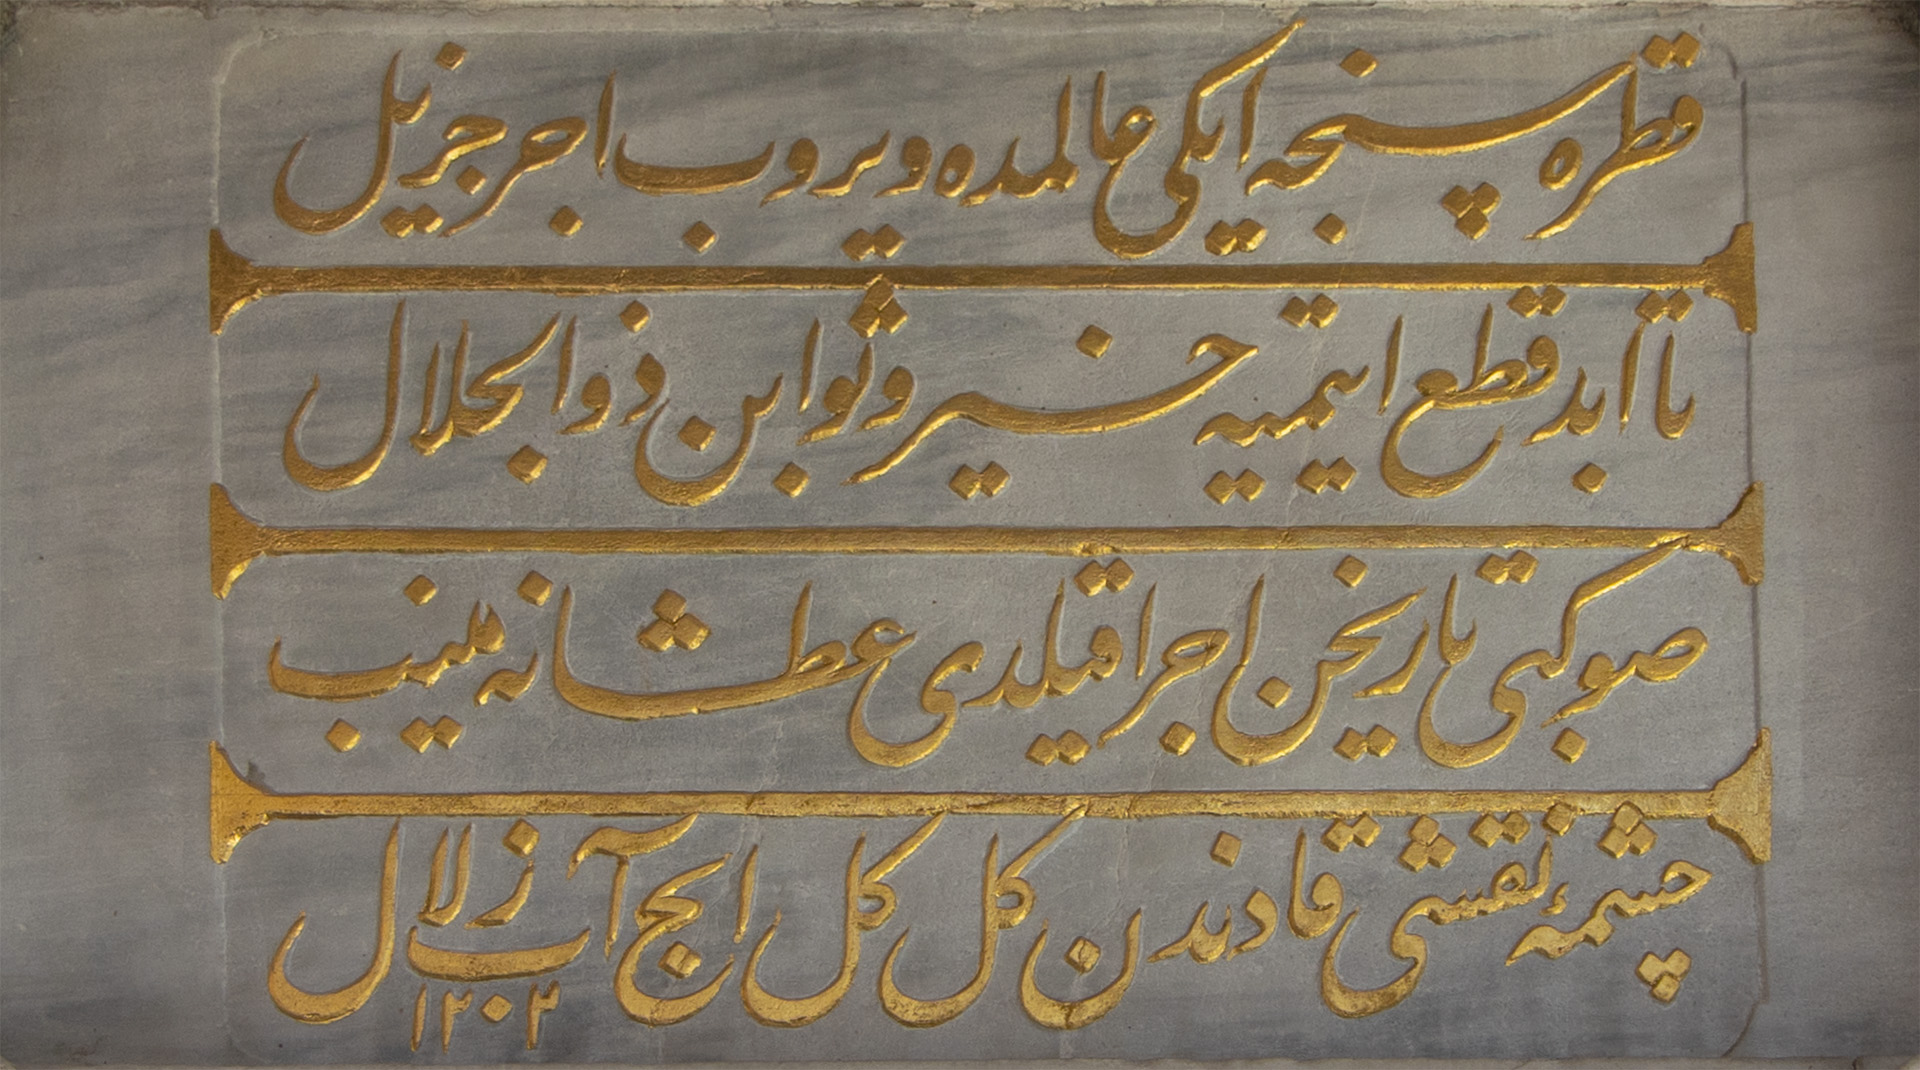 قطره سنجه ایکی عالمده ویروب اجر جزیل
تا ابد قطع ایتمیه خیر و ثوابن ذو الجلال
صو کبی تاریخن اجرا قیلدی عطشانه منیب
چشمهٔ نقشی قادندن کل کل ایچ آب زلال
١٢٠٤